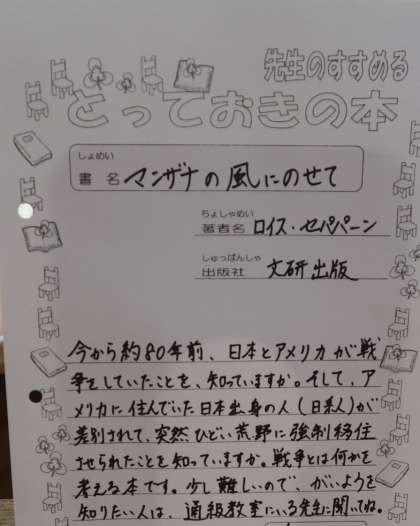 先生のすすめる
とっておきの本
しょめい
書名 マンザナの風にのせて
ちょしゃめい
著者名 ロイス・セパバーン
しゅっぱんしゃ
出版社 文研出版
今から約80年前、日本とアメリカが戦
争をしていたことを、知っていますか。そして、ア
メリカに住んでいた日本出身の人(日系人)が
差別されて、突然ひどい荒野に強制移住
させられたことを知っていますか。戦争とは何かを
考える本です。少し難しいので、がいようを
知りたい人は、通級教室にいる先生に聞いてね。